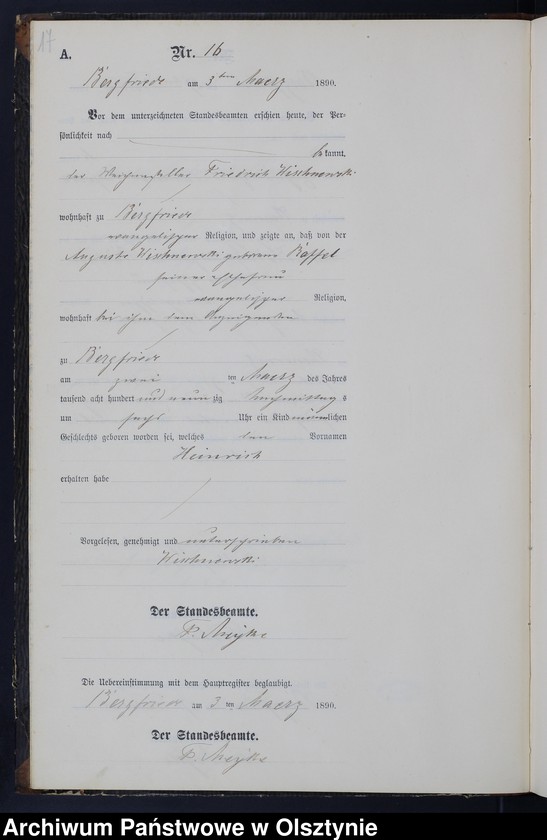 17
A.
Nr. 16
Bergfriede am 3ten Maerz 1890.
Vor dem unterzeichneten Standesbeamten erschien heute, der Per-
sönlichkeit nach
bekannt,
der Weichensteller Friedrich Wischnewski
wohnhaft zu Bergfriede
evangelischer Religion, und zeigte an, daß von der
Auguste Wischnewski geborene
seiner Ehefrau
evangelischer Religion,
wohnhaft bei ihm dem Anzeigenden
zu Bergfriede
am zwei ten Maerz des Jahres
tausend acht hundert und neunzig Nachmittags
um sechs Uhr ein Kind männlichen
Geschlechts geboren worden sei, welches den Vornamen
Heinrich
erhalten habe
Vorgelesen, genehmigt und unterschrieben
Wischnewski
Der Standesbeamte.
Die Uebereinstimmung mit dem Hauptregister beglaubigt.
Bergfriede am 3 ten Maerz 1890.
Der Standesbeamte.
Archiwum Państwowe w Olsztynie